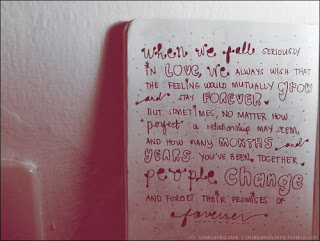 when we fall SERIOUSLY
IN LOVE, WE ALWAYS WISH THAT
THE FEELING WOULD MUTUALLY grow
and STAY FOREVER.
BUT SOMETIMES, NO MATTER HOW
"perfect" A RELATIONSHIP MAY SEEM,
AND HOW MANY MONTHS and
YEARS YOU'VE BEEN TOGETHER,
people CHANGE
AND FORGET THEIR PROMISES OF
forever